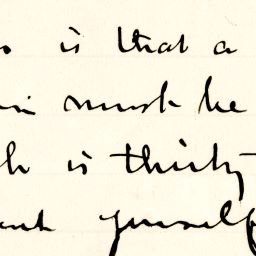 is that a
must be
is thirty
yourself